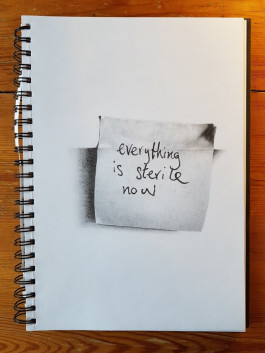 everything
is sterile
now